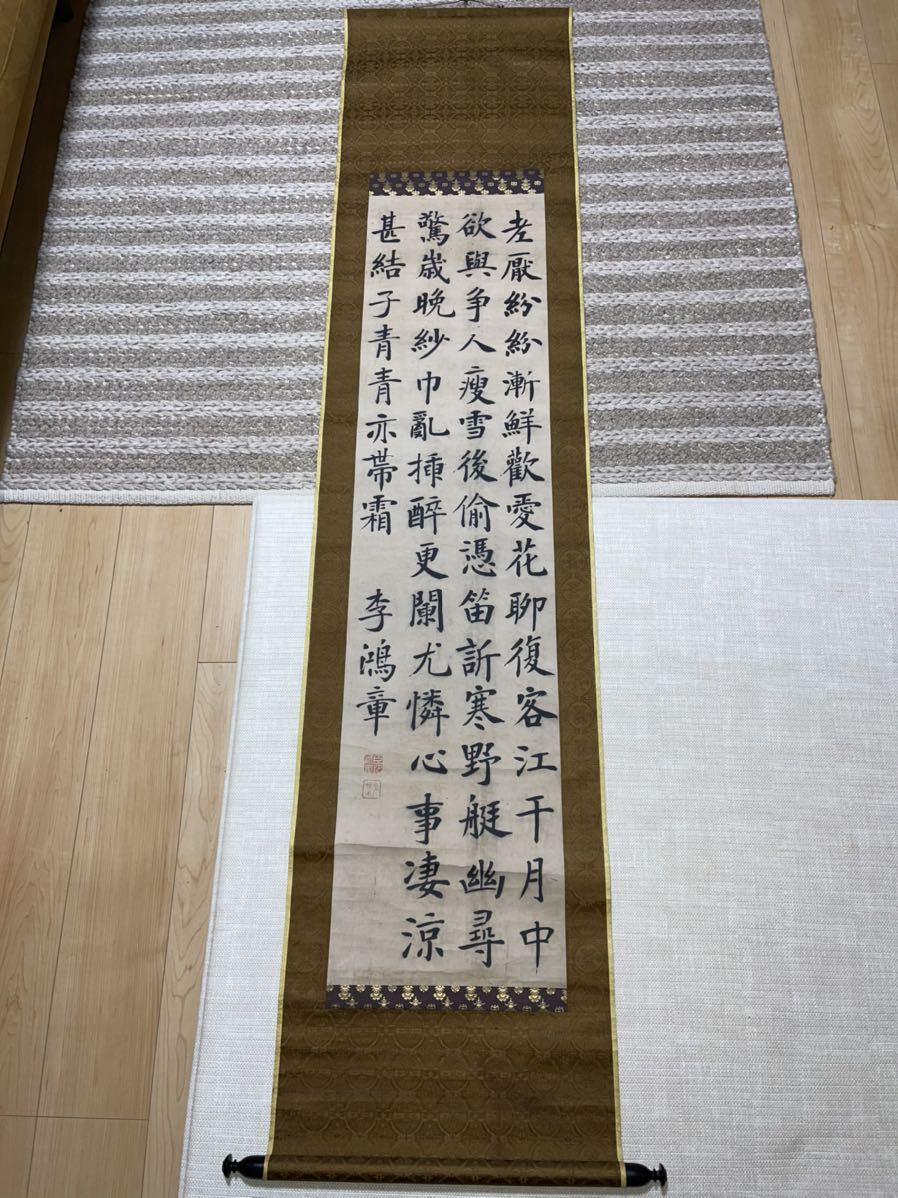 老厭紛紛漸鮮歡愛花聊復客江干月中
欲與争人瘦雪後偷憑笛訴寒野艇幽尋
驚歲晚紗巾亂插醉更闌尤憐心事凄涼
甚結子青青亦帶霜
李鴻章